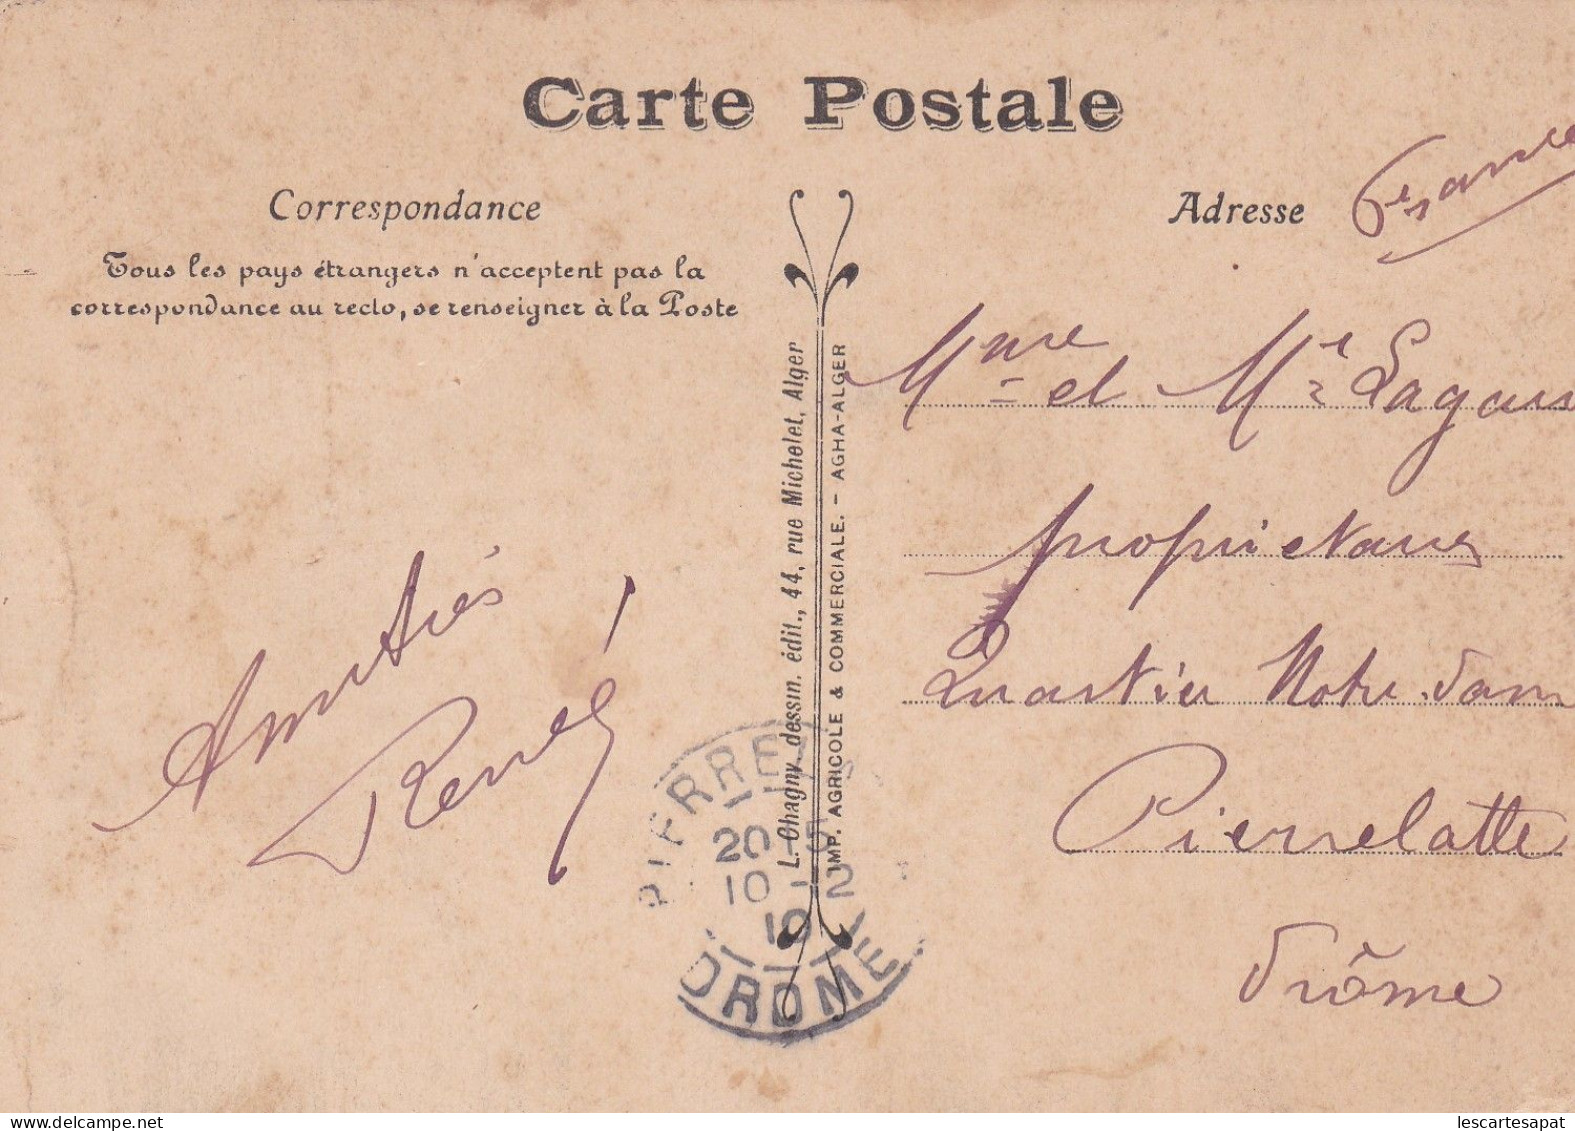 Carte Postale
Correspondance
Tous les pays étrangers n'acceptent pas la
correspondance au recto, se renseigner à la Poste
Amitiés
René
L. Chagny dessin. édit., 44, rue Michelet, Alger
IMP. AGRICOLE & COMMERCIALE. - AGHA-ALGER
PIERRE
20-5
10-2
10
DROME
Adresse
France
Mme et Mr
propriétaires
Quartier Notre Dam
Pierrelatte
Drôme
delcampe.net
lescartesapat